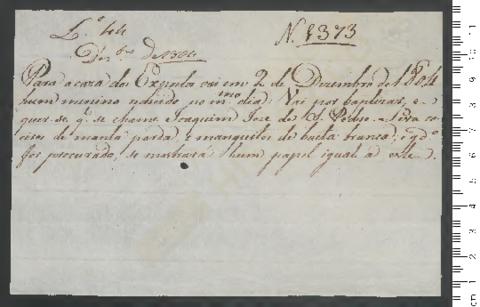 L.º 44
N. 1373
Dez.bro de 1804
Para a caza dos Expostos vai em 2 de Dezembro de 1804
hum menino nascido no mmo dia. Vai por baptizar, e
quer se q. se chame Joaquim Joze de S. Pedro. Leva co
eiros de manta parda, e manguitos de baeta branca; e qdo
for procurado, se mostrará hum papel igual a este.